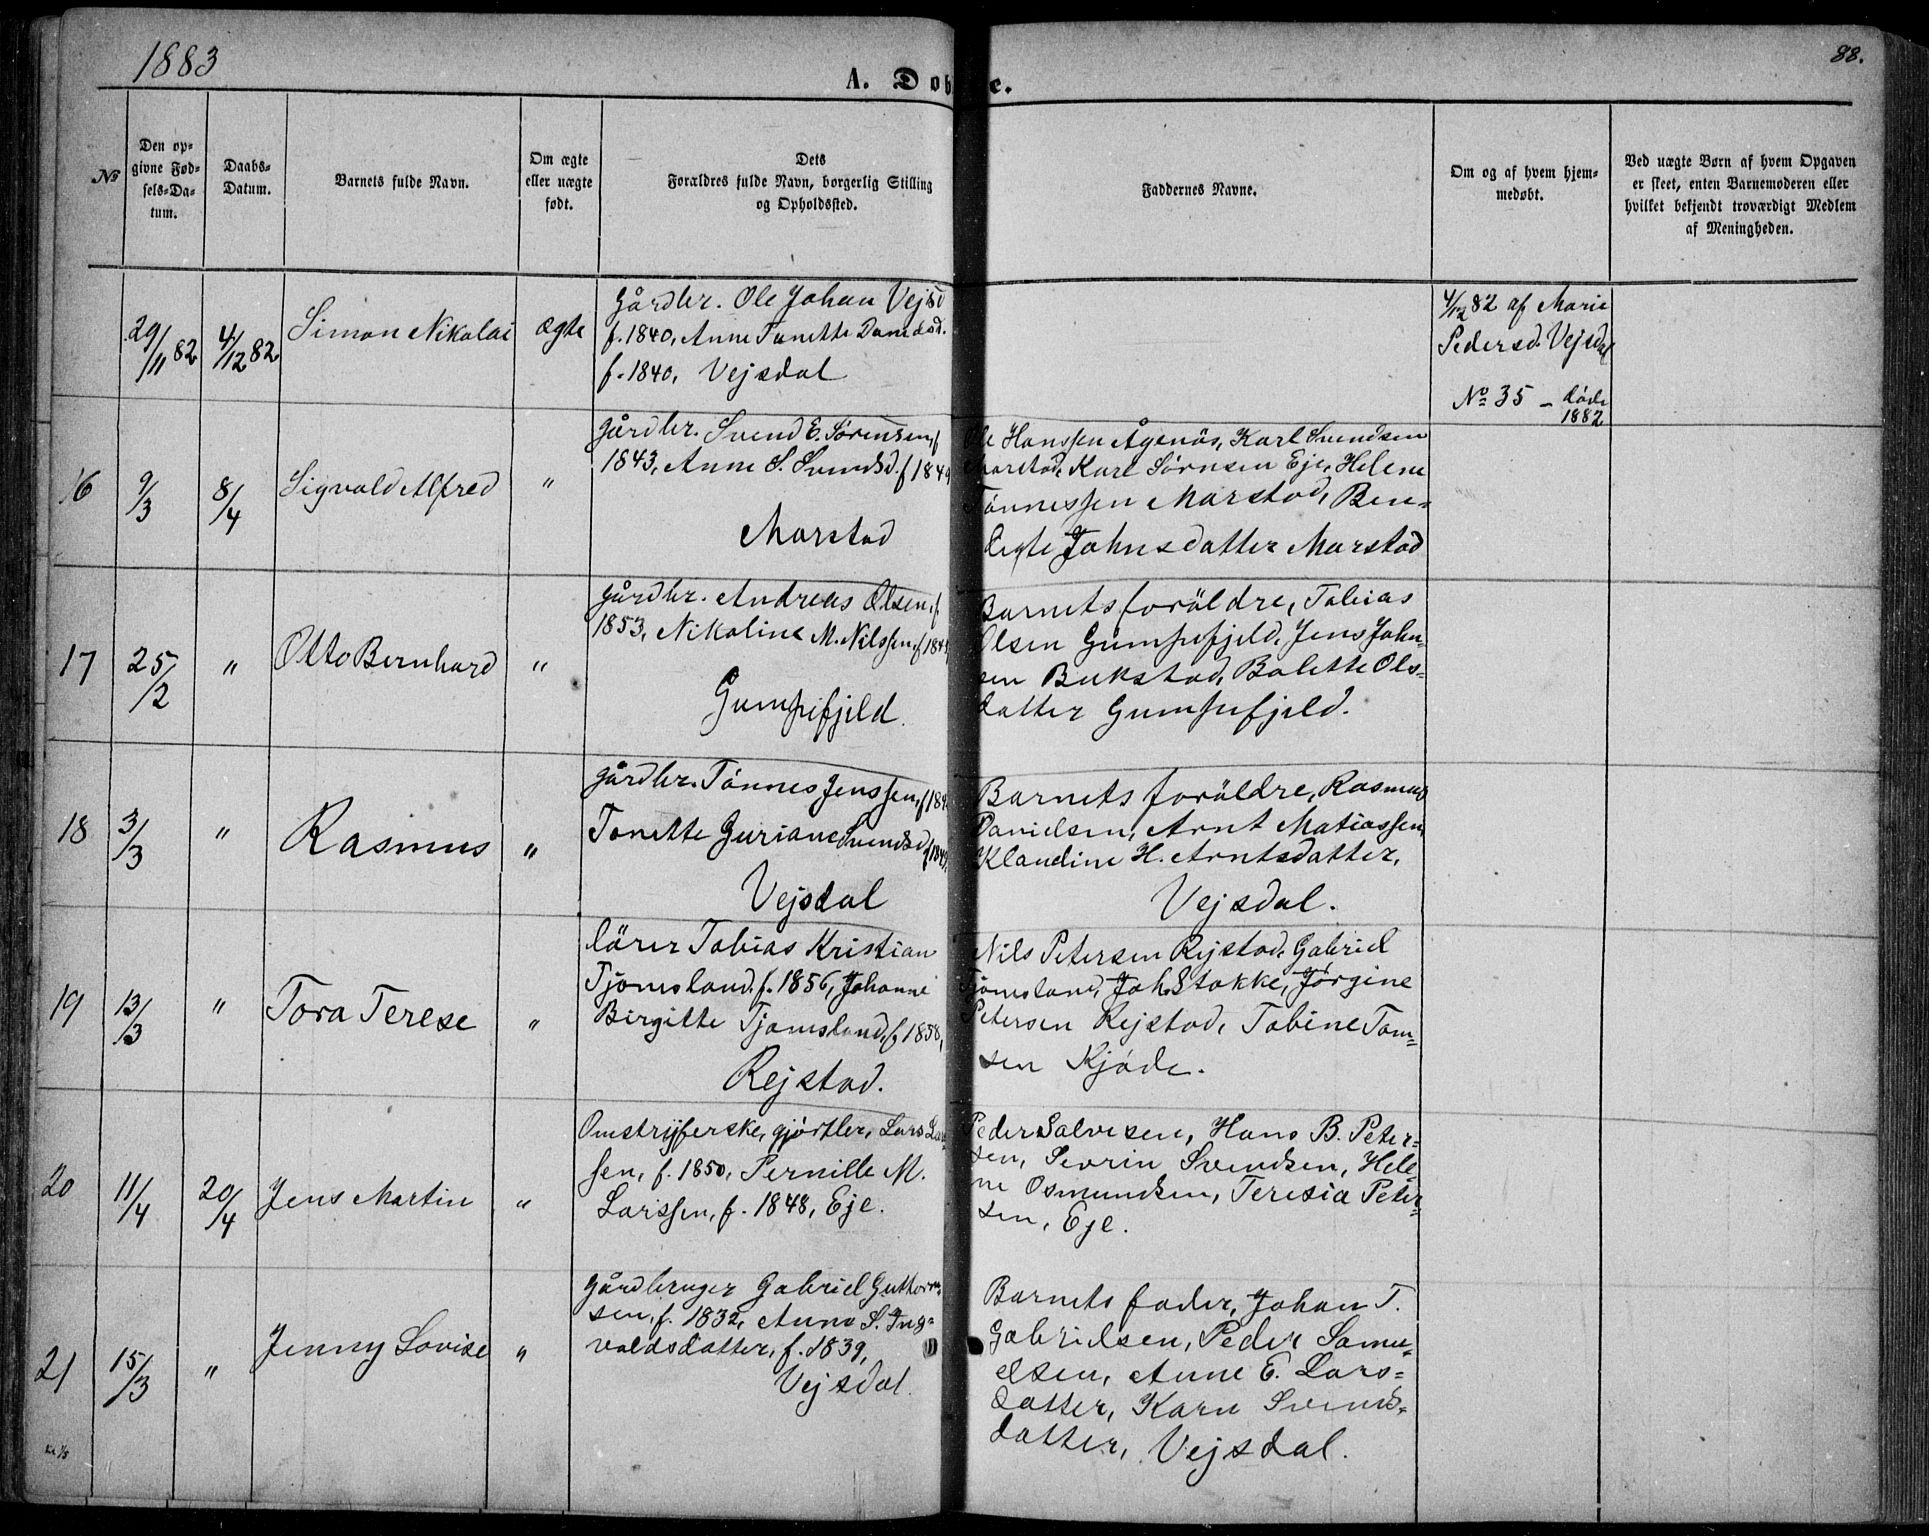 1883
88.
A. Dob e.
No
Den op-
givne Fød-
sels-Da-
tum.
Daabs-
Datum.
Barnets fulde Navn.
Om ægte
eller uægte
født.
Dets
Forældres fulde Navn, borgerlig Stilling
og Opholdssted.
Faddernes Navne.
Om og af hvem hjem-
medøbt.
Ved uægte Børn af hvem Opgaven
er skeet, enten Barnemoderen eller
hvilket bekjendt troværdigt Medlem
af Meningheden.
29/11 82
4/12 82
Simon Nikolai
ægte
Gårdbr. Ole Johan Vejsd
f. 1840, Anne Tonette Danielsd.
f. 1840, Vejsdal
4/12 82 af Marie
Pedersd. Vejsdal
No 35 - døde
1882
16
9/3
8/4
Sigvald Alfred
"
gårdbr. Svend E. Sörensen, f
1843, Anne S. Svendsd. f 1849
Marstad
Ole Hanssen Ågenäs, Karl Svendsen
Marstad, Karl Sørnsen Eje, Helene
Tönnessen Marstad, Ben-
degte Johnsdatter Marstad
17
25/2
"
Otto Bernhard
"
gårdbr. Andreas Olsen, f
1853, Nikoline M. Nilssen, f 184
Gumpefjeld.
Barnets foräldre, Tobias
Olsen Gumpefjeld, Jens John-
sen Bukstad, Bolette Ols-
datter Gumpefjeld.
18
3/3
"
Rasmus
"
gårdbr. Tönnes Jenssen, f 184
Tonette Guriane Svendsd f 1849
Vejsdal
Barnets foräldre, Rasmus
Danielsen, Arnt Matiassen
Klaudine H. Arntsdatter,
Vejsdal.
19
13/3
"
Tora Terese
"
lärer Tobias Kristian
Tjomsland. f. 1856, Johanne
Birgitte Tjomsland, f 1858,
Rejstad.
Nils Petersen Rejstad, Gabriel
Tjomsland, Joh. Stokke, Jörgine
Petersen Rejstad, Tobine Tom-
sen Kjöde.
20
11/4
20/4
Jens Martin
"
Omstrejferske, gjörtler, Lars Lar
sen, f. 1850, Pernille M.
Larssen, f. 1848, Eje.
Peder Salvesen, Hans B. Peter-
sen, Sevrin Svendsen, Hele
ne Osmundsen, Teresia Peter-
sen, Eje.
21
15/3
"
Jenny Lovise
"
gårdbruger Gabriel Guttorm-
sen, f. 1832, Anne S. Ing-
valdsdatter, f. 1839,
Vejsdal.
Barnets fader, Johan T.
Gabrielsen, Peder Samu-
elsen, Anne E. Lars-
datter, Karn Svends-
datter, Vejsdal.